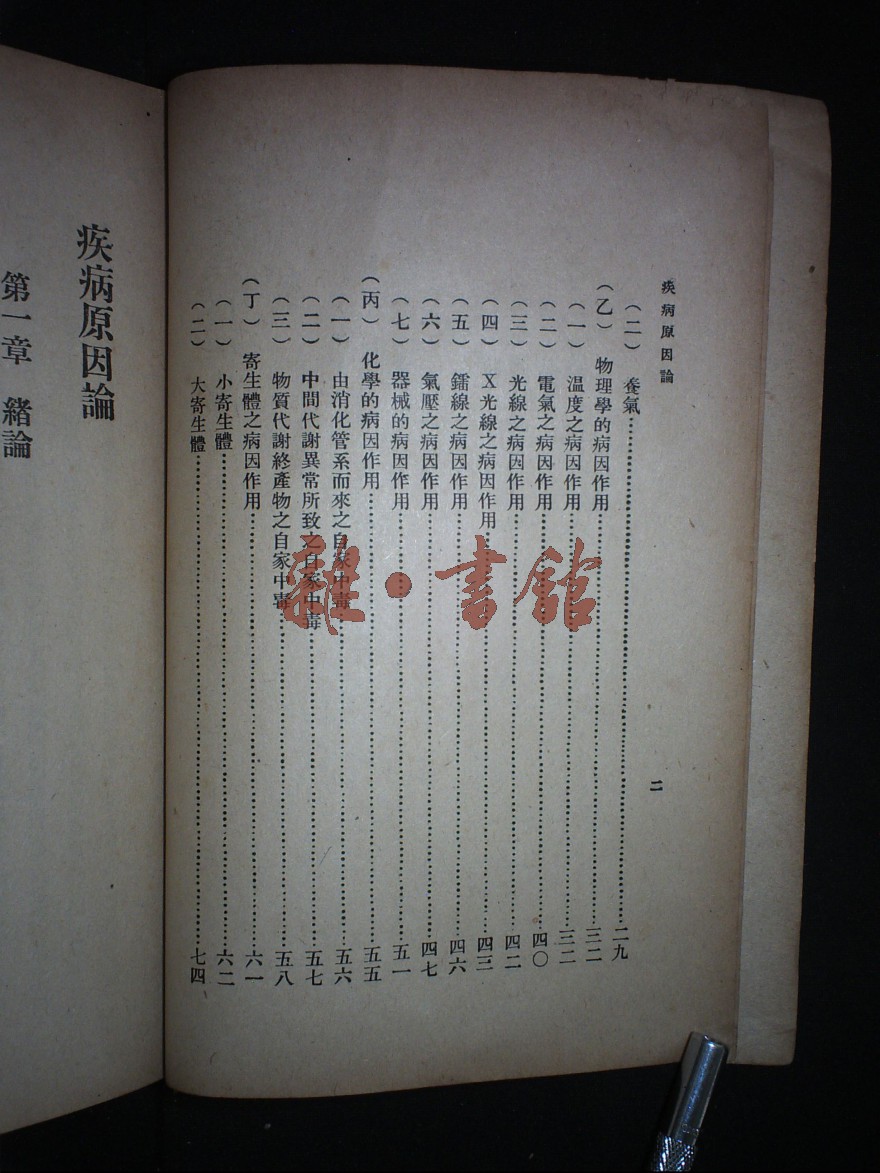 疾病原因論
二
(二) 養氣……二九
(乙) 物理學的病因作用……三二
(一) 溫度之病因作用……三二
(二) 電氣之病因作用……四〇
(三) 光線之病因作用……四二
(四) X光線之病因作用……四三
(五) 鐳線之病因作用……四六
(六) 氣壓之病因作用……四七
(七) 器械的病因作用……五一
(丙) 化學的病因作用……五五
(一) 由消化管系而來之自家中毒……五六
(二) 中間代謝異常所致之自家中毒……五七
(三) 物質代謝終產物之自家中毒……五八
(丁) 寄生體之病因作用……六一
(一) 小寄生體……六二
(二) 大寄生體……七四
疾病原因論
第一章 緒論
雜·書館